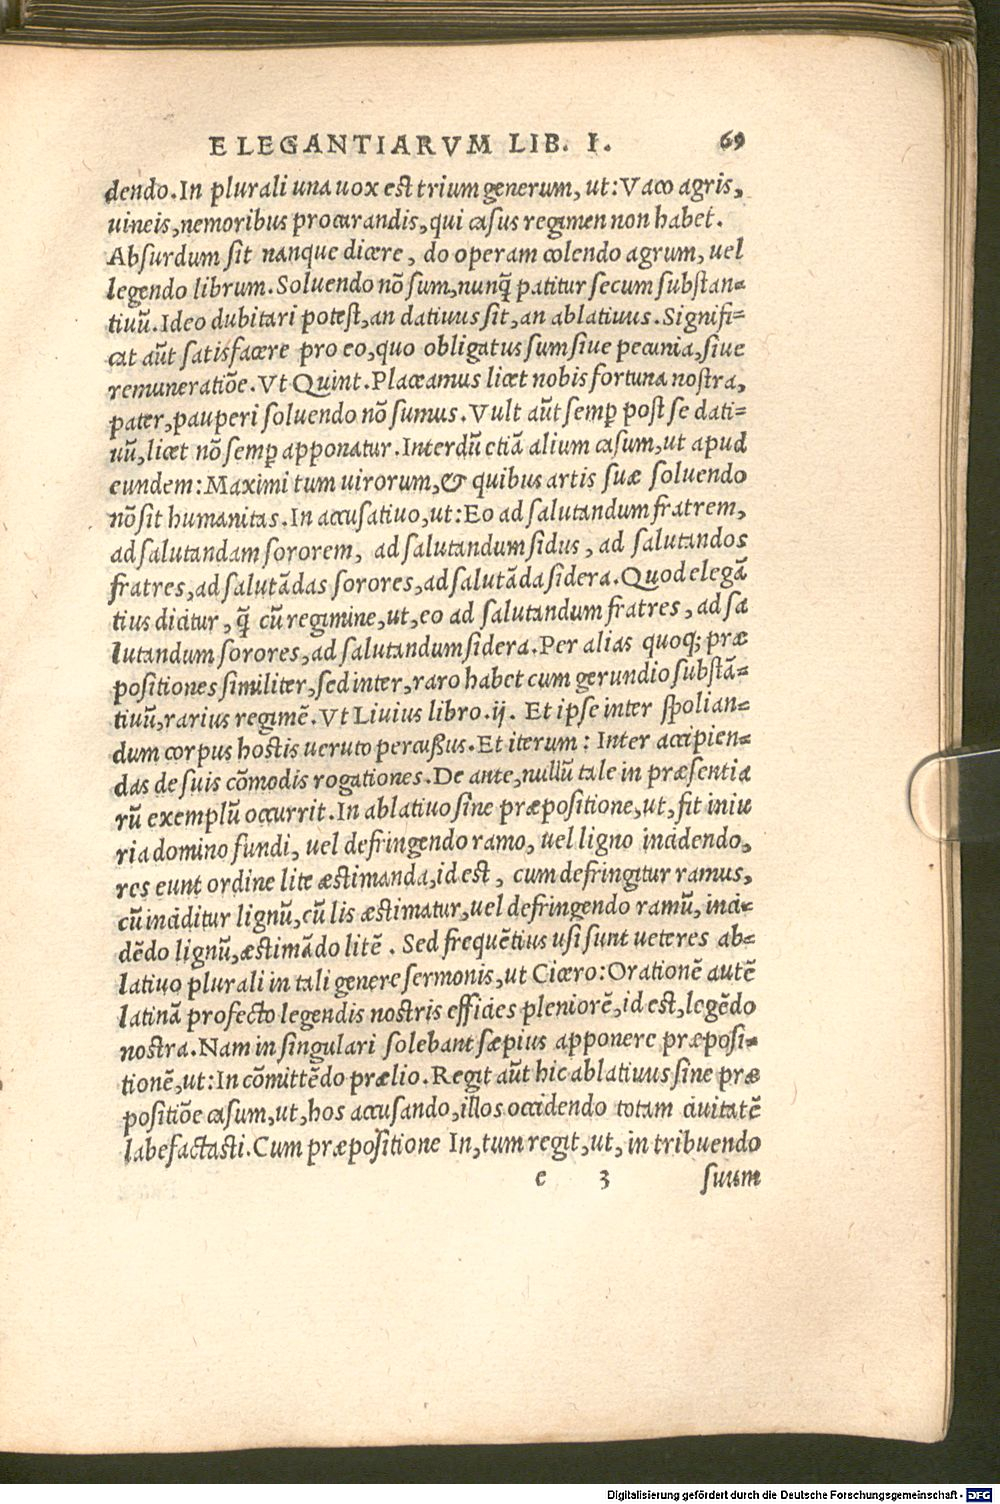 ELEGANTIARVM LIB. I. 69
dendo. In plurali una uox est trium generum, ut: Vaco agris,
uineis, nemoribus procurandis, qui casus regimen non habet.
Absurdum sit nanque dicere, do operam colendo agrum, uel
legendo librum. Soluendo nõ sum, nunq̃ patitur secum substan=
tiuũ. Ideo dubitari potest, an datiuus sit, an ablatiuus. Signifi=
cat aũt satisfacere pro eo, quo obligatus sum siue pecunia, siue
remuneratiõe. Vt Quint. Placeamus licet nobis fortuna nostra,
pater, pauperi soluendo nõ sumus. Vult aũt semp̱ post se dati=
uũ, licet nõ semp̱ apponatur. Interdũ etiã alium casum, ut apud
eundem: Maximi tum uirorum, & quibus artis suæ soluendo
nõ sit humanitas. In accusatiuo, ut: Eo ad salutandum fratrem,
ad salutandam sororem, ad salutandum sidus, ad salutandos
fratres, ad salutãdas sorores, ad salutãda sidera. Quod elegã
tius dicitur, q̃ cũ regimine, ut, eo ad salutandum fratres, ad sa
lutandum sorores, ad salutandum sidera. Per alias quoq; præ
positiones similiter, sed inter, raro habet cum gerundio substã=
tiuũ, rarius regimẽ. Vt Liuius libro. ij. Et ipse inter spolian=
dum corpus hostis ueruto percußus. Et iterum: Inter accipien=
das de suis cõmodis rogationes. De ante, nullũ tale in præsentia
rũ exemplũ occurrit. In ablatiuo sine præpositione, ut, fit iniu
ria domino fundi, uel defringendo ramo, uel ligno incidendo,
res eunt ordine lite æstimanda, id est, cum defringitur ramus,
cũ inciditur lignũ, cũ lis æstimatur, uel defringendo ramũ, inci=
dẽdo lignũ, æstimãdo litẽ. Sed frequẽtius usi sunt ueteres ab=
latiuo plurali in tali genere sermonis, ut Cicero: Orationẽ autẽ
latinã profecto legendis nostris efficies pleniorẽ, id est, legẽdo
nostra. Nam in singulari solebant sæpius apponere præposi=
tionẽ, ut: In cõmittẽdo prælio. Regit aũt hic ablatiuus sine præ
positiõe casum, ut, hos accusando, illos occidendo totam ciuitatẽ
labefactasti. Cum præpositione In, tum regit, ut, in tribuendo
e 3 suum
Digitalisierung gefördert durch die Deutsche Forschungsgemeinschaft - DFG